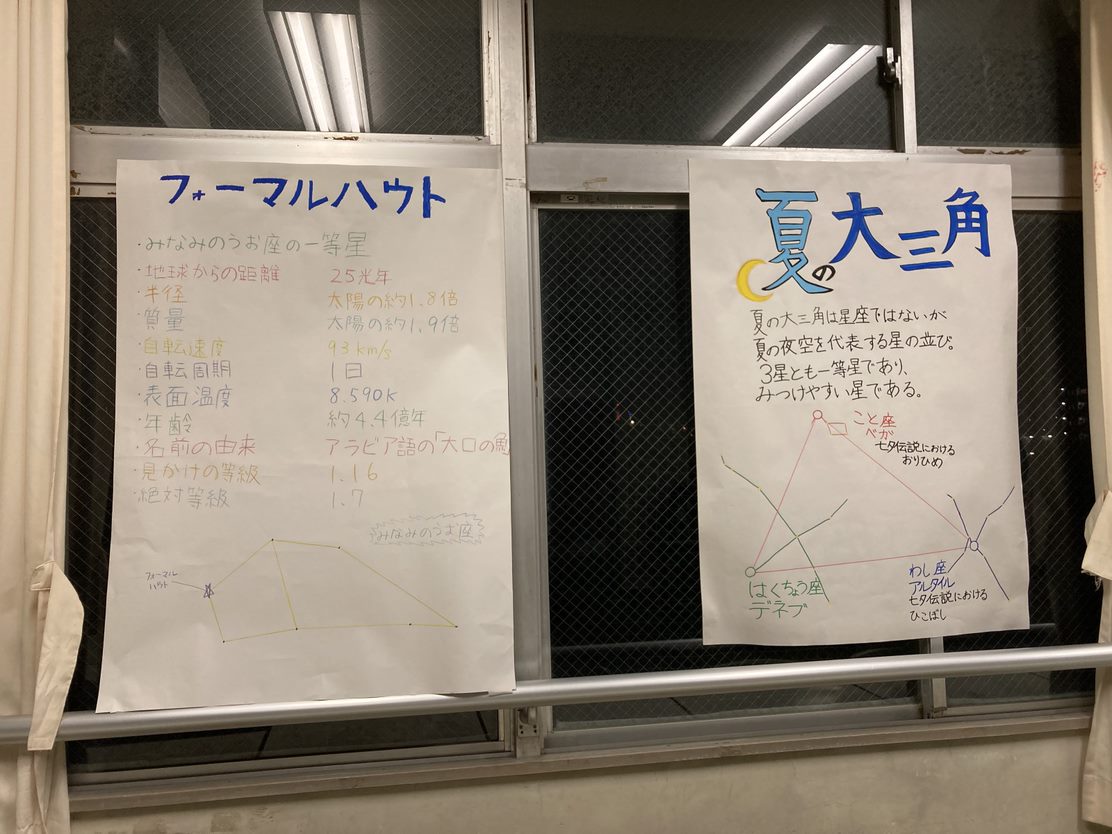 フォーマルハウト
・みなみのうお座の一等星
・地球からの距離 25光年
・半径 太陽の約1.8倍
・質量 太陽の約1.9倍
・自転速度 93km/s
・自転周期 1日
・表面温度 8.590K
・年齢 約4.4億年
・名前の由来 アラビア語の「大口の魚
・見かけの等級 1.16
・絶対等級 1.7
みなみのうお座
フォーマル
ハウト
夏の大三角
夏の大三角は星座ではないが
夏の夜空を代表する星の並び。
3星とも一等星であり、
みつけやすい星である。
こと座
ベガ
七夕伝説における
おりひめ
はくちょう座
デネブ
わし座
アルタイル
七夕伝説における
ひこぼし